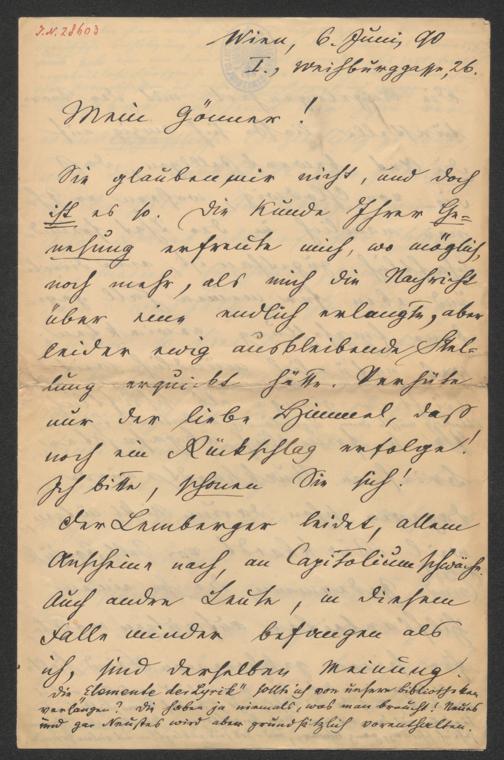 J.N. 28603
Wien, 6. Juni 90
I., Weihburggasse, 26.
Mein Gönner!
Sie glauben mir nicht, und doch
ist es so. Die Kunde Ihrer Ge=
nesung erfreute mich, wo möglich,
noch mehr, als mich die Nachricht
über eine endlich erlangte, aber
leider ewig ausbleibende Stel=
lung erquickt hätte. Verhüte
nur der liebe Himmel, daß
noch ein Rückschlag erfolge!
Ich bitte, schonen Sie sich!
Der Lemberger leidet, allem
Anscheine nach, an Capitoliumschwäche.
Auch andre Leute, in diesem
Falle minder befangen als
ich, sind derselben Meinung.
Die "Elemente der Lyrik" sollt' ich von unsern Bibliotheken
verlangen? Die haben ja niemals, was man braucht! Neues
und gar Neustes wird aber grundsätzlich vorenthalten.